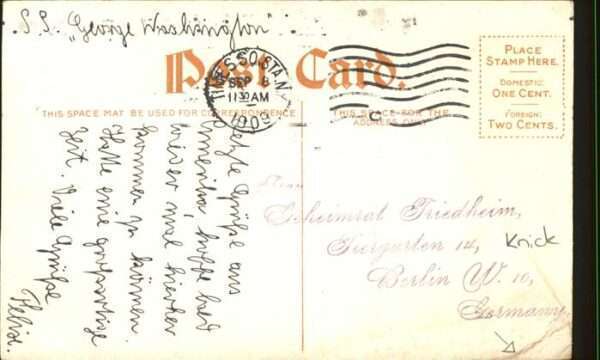 S.S. "George Washington"
Post Card.
TIMES SQ. STA. N.Y.
SEP 8
11 30 AM
THIS SPACE MAY BE USED FOR CORRESPONDENCE
THIS SPACE FOR THE
ADDRESS ONLY
PLACE
STAMP HERE.
DOMESTIC:
ONE CENT.
FOREIGN:
TWO CENTS.
Letzte Grüße aus
Amerika, hoffe bald
wieder mal hierher
kommen zu können
Hatte eine großartige
Zeit. Viele Grüße
Geheimrat Friedheim,
Tiergarten 14,
Berlin W. 10,
Germany.
Knick